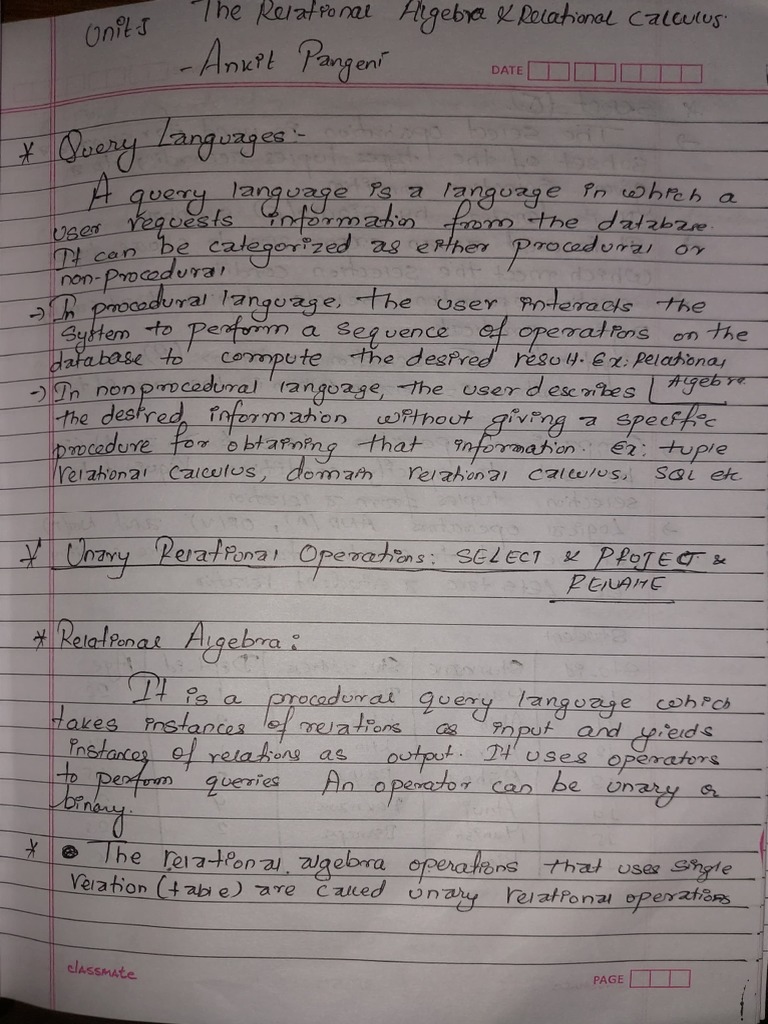 Unit 5 The Relational Algebra & Relational Calculus.
- Ankit Pangeni
DATE
* Query Languages:-
A query language is a language in which a
user requests information from the database.
It can be categorized as either procedural or
non-procedural
→ In procedural language, the user interacts the
system to perform a sequence of operations on the
database to compute the desired result. Ex: Relational
Algebra
→ In nonprocedural language, the user describes
the desired information without giving a specific
procedure for obtaining that information. Ex: tuple
relational calculus, domain relational calculus, SQL etc.
* Unary Relational Operations: SELECT & PROJECT &
RENAME
* Relational Algebra:
It is a procedural query language which
takes instances of relations as input and yields
instances of relations as output. It uses operators
to perform queries An operator can be unary or
binary.
* The relational algebra operations that uses single
relation (table) are called unary relational operations
classmate
PAGE